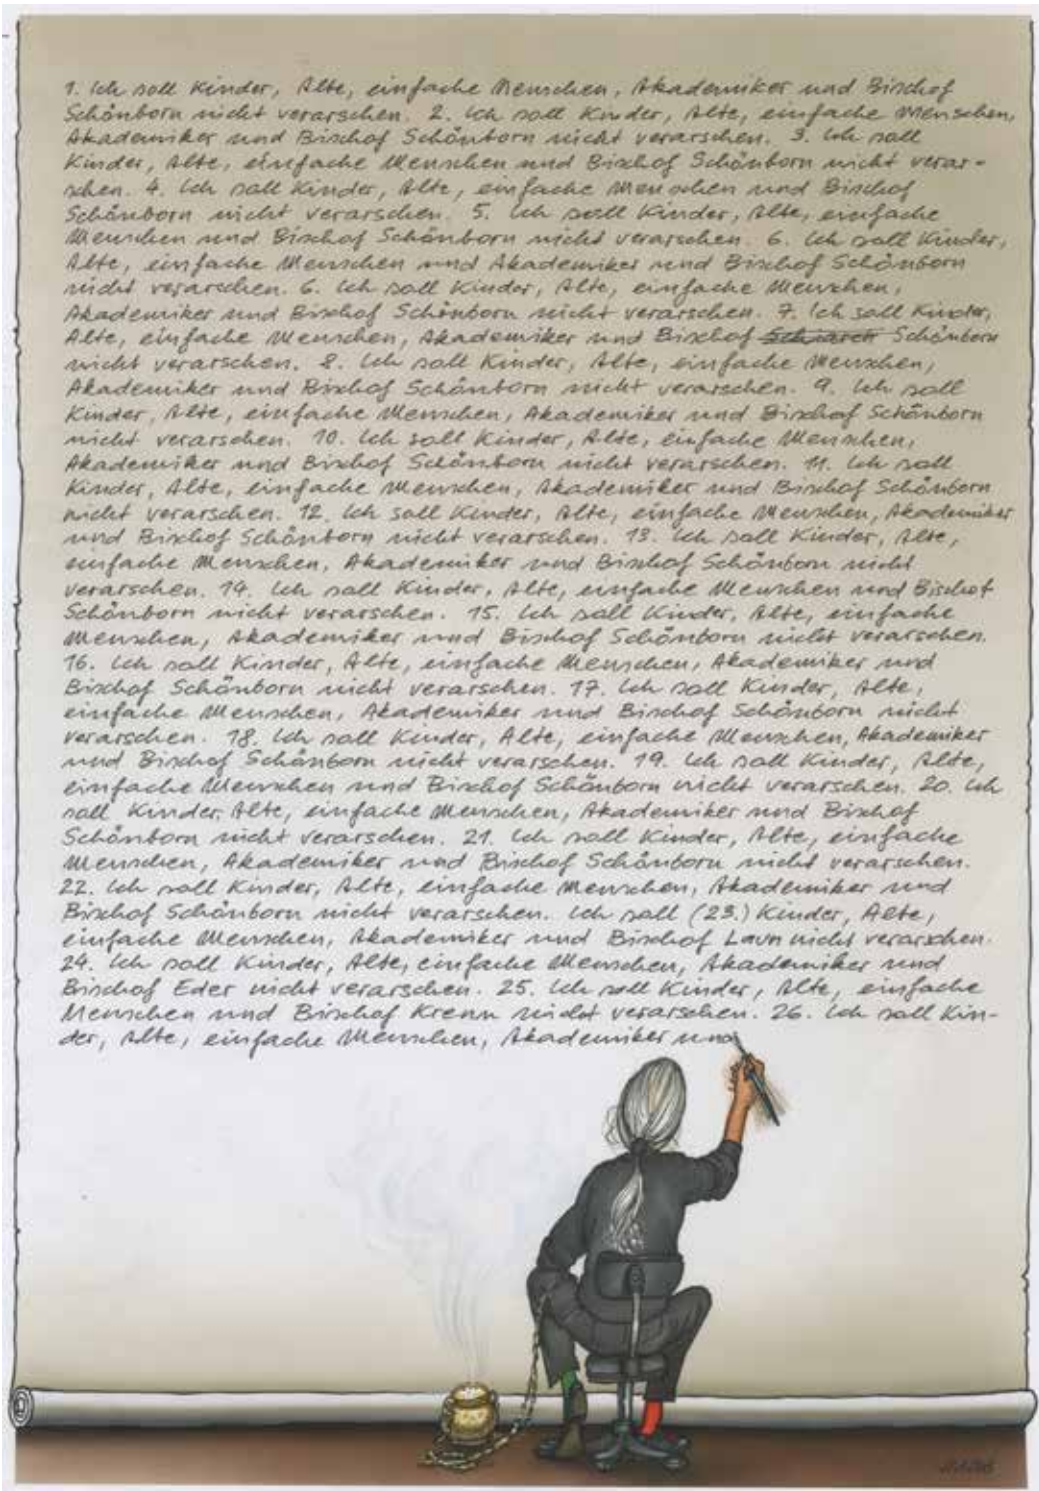 1. Ich soll Kinder, Alte, einfache Menschen, Akademiker und Bischof
Schönborn nicht verarschen. 2. Ich soll Kinder, Alte, einfache Menschen,
Akademiker und Bischof Schönborn nicht verarschen. 3. Ich soll
Kinder, Alte, einfache Menschen und Bischof Schönborn nicht verar-
schen. 4. Ich soll Kinder, Alte, einfache Menschen und Bischof
Schönborn nicht verarschen. 5. Ich soll Kinder, Alte, einfache
Menschen und Bischof Schönborn nicht verarschen. 6. Ich soll Kinder,
Alte, einfache Menschen und Akademiker und Bischof Schönborn
nicht verarschen. 6. Ich soll Kinder, Alte, einfache Menschen,
Akademiker und Bischof Schönborn nicht verarschen. 7. Ich soll Kinder,
Alte, einfache Menschen, Akademiker und Bischof Schönborn
nicht verarschen. 8. Ich soll Kinder, Alte, einfache Menschen,
Akademiker und Bischof Schönborn nicht verarschen. 9. Ich soll
Kinder, Alte, einfache Menschen, Akademiker und Bischof Schönborn
nicht verarschen. 10. Ich soll Kinder, Alte, einfache Menschen,
Akademiker und Bischof Schönborn nicht verarschen. 11. Ich soll
Kinder, Alte, einfache Menschen, Akademiker und Bischof Schönborn
nicht verarschen. 12. Ich soll Kinder, Alte, einfache Menschen, Akademiker
und Bischof Schönborn nicht verarschen. 13. Ich soll Kinder, Alte,
einfache Menschen, Akademiker und Bischof Schönborn nicht
verarschen. 14. Ich soll Kinder, Alte, einfache Menschen und Bischof
Schönborn nicht verarschen. 15. Ich soll Kinder, Alte, einfache
Menschen, Akademiker und Bischof Schönborn nicht verarschen.
16. Ich soll Kinder, Alte, einfache Menschen, Akademiker und
Bischof Schönborn nicht verarschen. 17. Ich soll Kinder, Alte,
einfache Menschen, Akademiker und Bischof Schönborn nicht
verarschen. 18. Ich soll Kinder, Alte, einfache Menschen, Akademiker
und Bischof Schönborn nicht verarschen. 19. Ich soll Kinder, Alte,
einfache Menschen und Bischof Schönborn nicht verarschen. 20. Ich
soll Kinder, Alte, einfache Menschen, Akademiker und Bischof
Schönborn nicht verarschen. 21. Ich soll Kinder, Alte, einfache
Menschen, Akademiker und Bischof Schönborn nicht verarschen.
22. Ich soll Kinder, Alte, einfache Menschen, Akademiker und
Bischof Schönborn nicht verarschen. Ich soll (23.) Kinder, Alte,
einfache Menschen, Akademiker und Bischof Laun nicht verarschen.
24. Ich soll Kinder, Alte, einfache Menschen, Akademiker und
Bischof Eder nicht verarschen. 25. Ich soll Kinder, Alte, einfache
Menschen und Bischof Krenn nicht verarschen. 26. Ich soll Kin-
der, Alte, einfache Menschen, Akademiker und